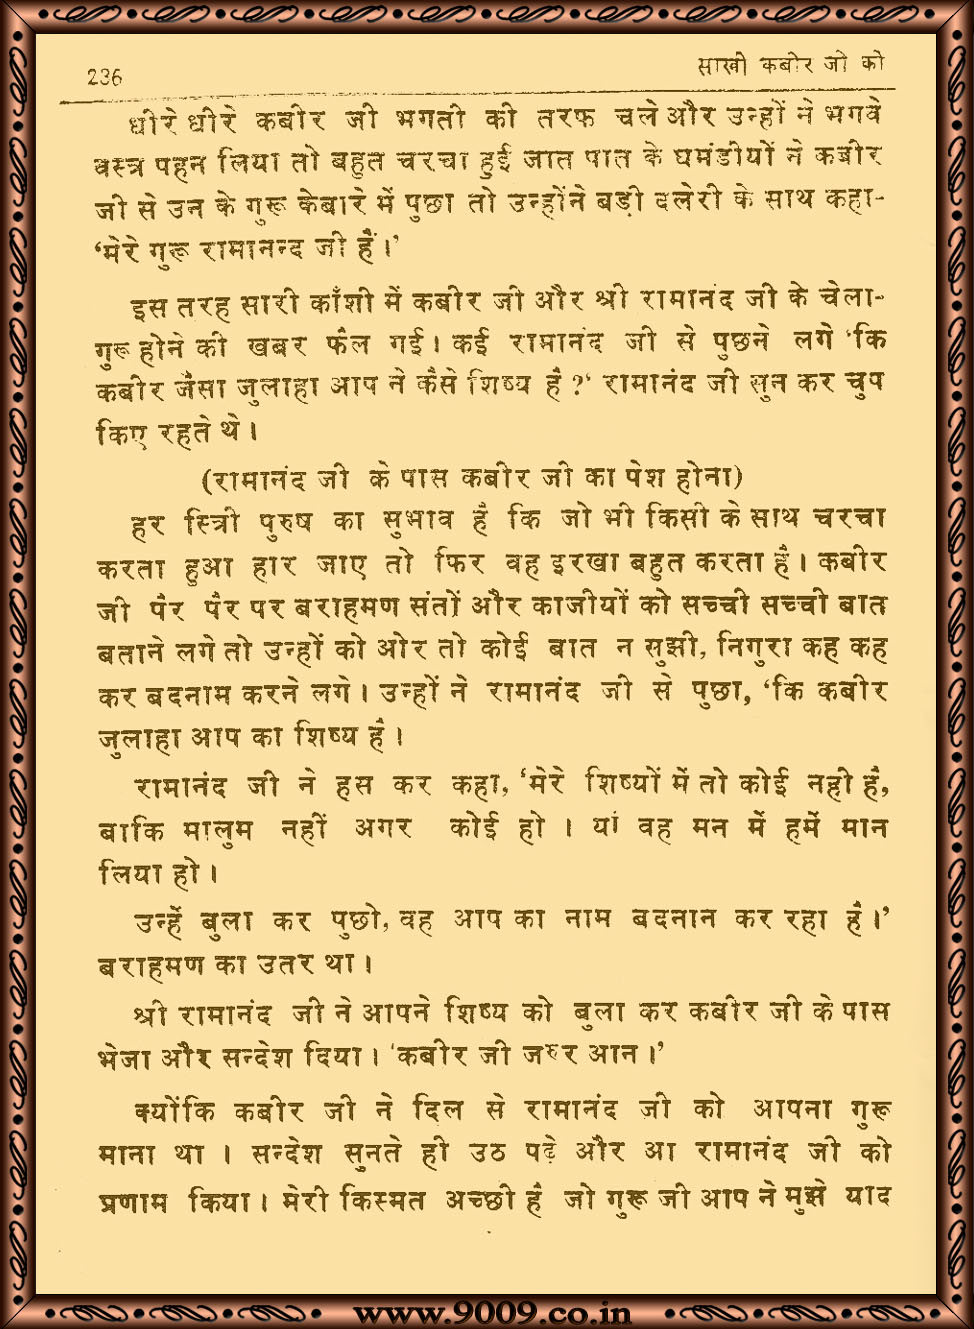 236
साखी कबीर जी की
धीरे धीरे कबीर जी भगती की तरफ चले और उन्हों ने भगवे
वस्त्र पहन लिया तो बहुत चरचा हुई जात पात के घमंडीयों ने कबीर
जी से उन के गुरू केबारे में पुछा तो उन्होंने बड़ी दलेरी के साथ कहा-
‘मेरे गुरू रामानन्द जी हैं।’
इस तरह सारी काँशी में कबीर जी और श्री रामानंद जी के चेला-
गुरू होने की खबर फैल गई। कई रामानंद जी से पुछने लगे ‘कि
कबीर जैसा जुलाहा आप ने कैसे शिष्य है ?‘ रामानंद जी सुन कर चुप
किए रहते थे।
(रामानंद जी के पास कबीर जी का पेश होना)
हर स्त्रिी पुरुष का सुभाव है कि जो भी किसी के साथ चरचा
करता हुआ हार जाए तो फिर वह इरखा बहुत करता है। कबीर
जी पैर पैर पर बराहमण संतों और काजीयों को सच्ची सच्ची बात
बताने लगे तो उन्हों को ओर तो कोई बात न सुझी, निगुरा कह कह
कर बदनाम करने लगे। उन्हों ने रामानंद जी से पुछा, ‘कि कबीर
जुलाहा आप का शिष्य है।
रामानंद जी ने हस कर कहा, ‘मेरे शिष्यों में तो कोई नही है,
बाकि मालुम नहीं अगर कोई हो । यां वह मन में हमें मान
लिया हो।
उन्हें बुला कर पुछो, वह आप का नाम बदनान कर रहा है।’
बराहमण का उतर था।
श्री रामानंद जी ने आपने शिष्य को बुला कर कबीर जी के पास
भेजा और सन्देश दिया। ‘कबीर जी जरुर आन।’
क्योंकि कबीर जी ने दिल से रामानंद जी को आपना गुरू
माना था । सन्देश सुनते ही उठ पढ़े और आ रामानंद जी को
प्रणाम किया। मेरी किस्मत अच्छी है जो गुरू जी आप ने मुझे याद
www.9009.co.in